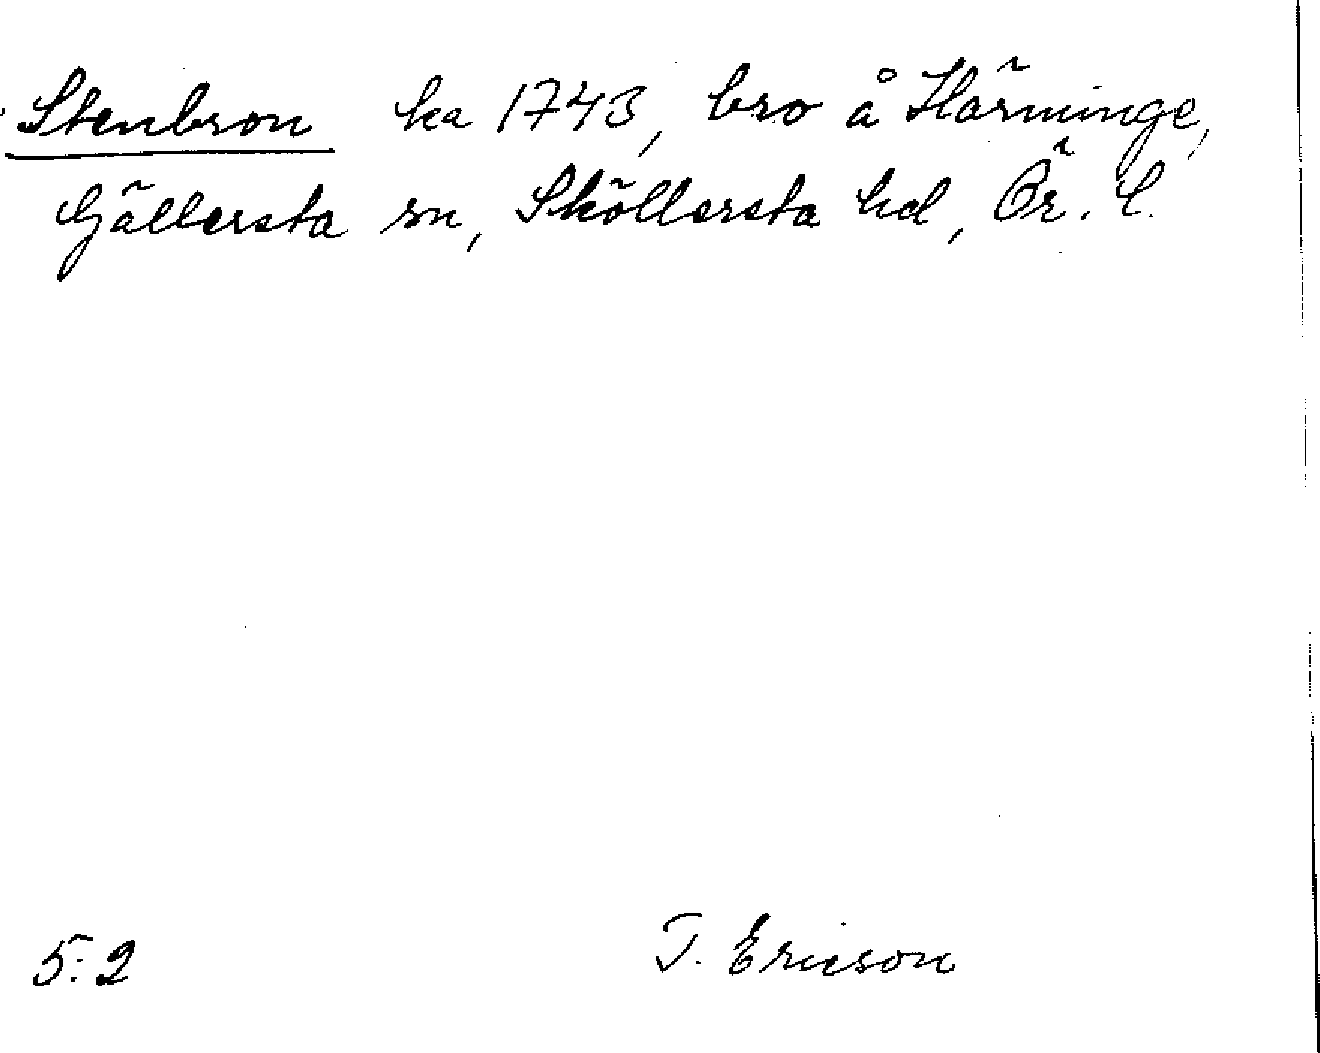 Stenbron ka 1743, bro å Härminge,
Gällersta sn, Sköllersta hd, Ör. l.
5:2
T. Ericson